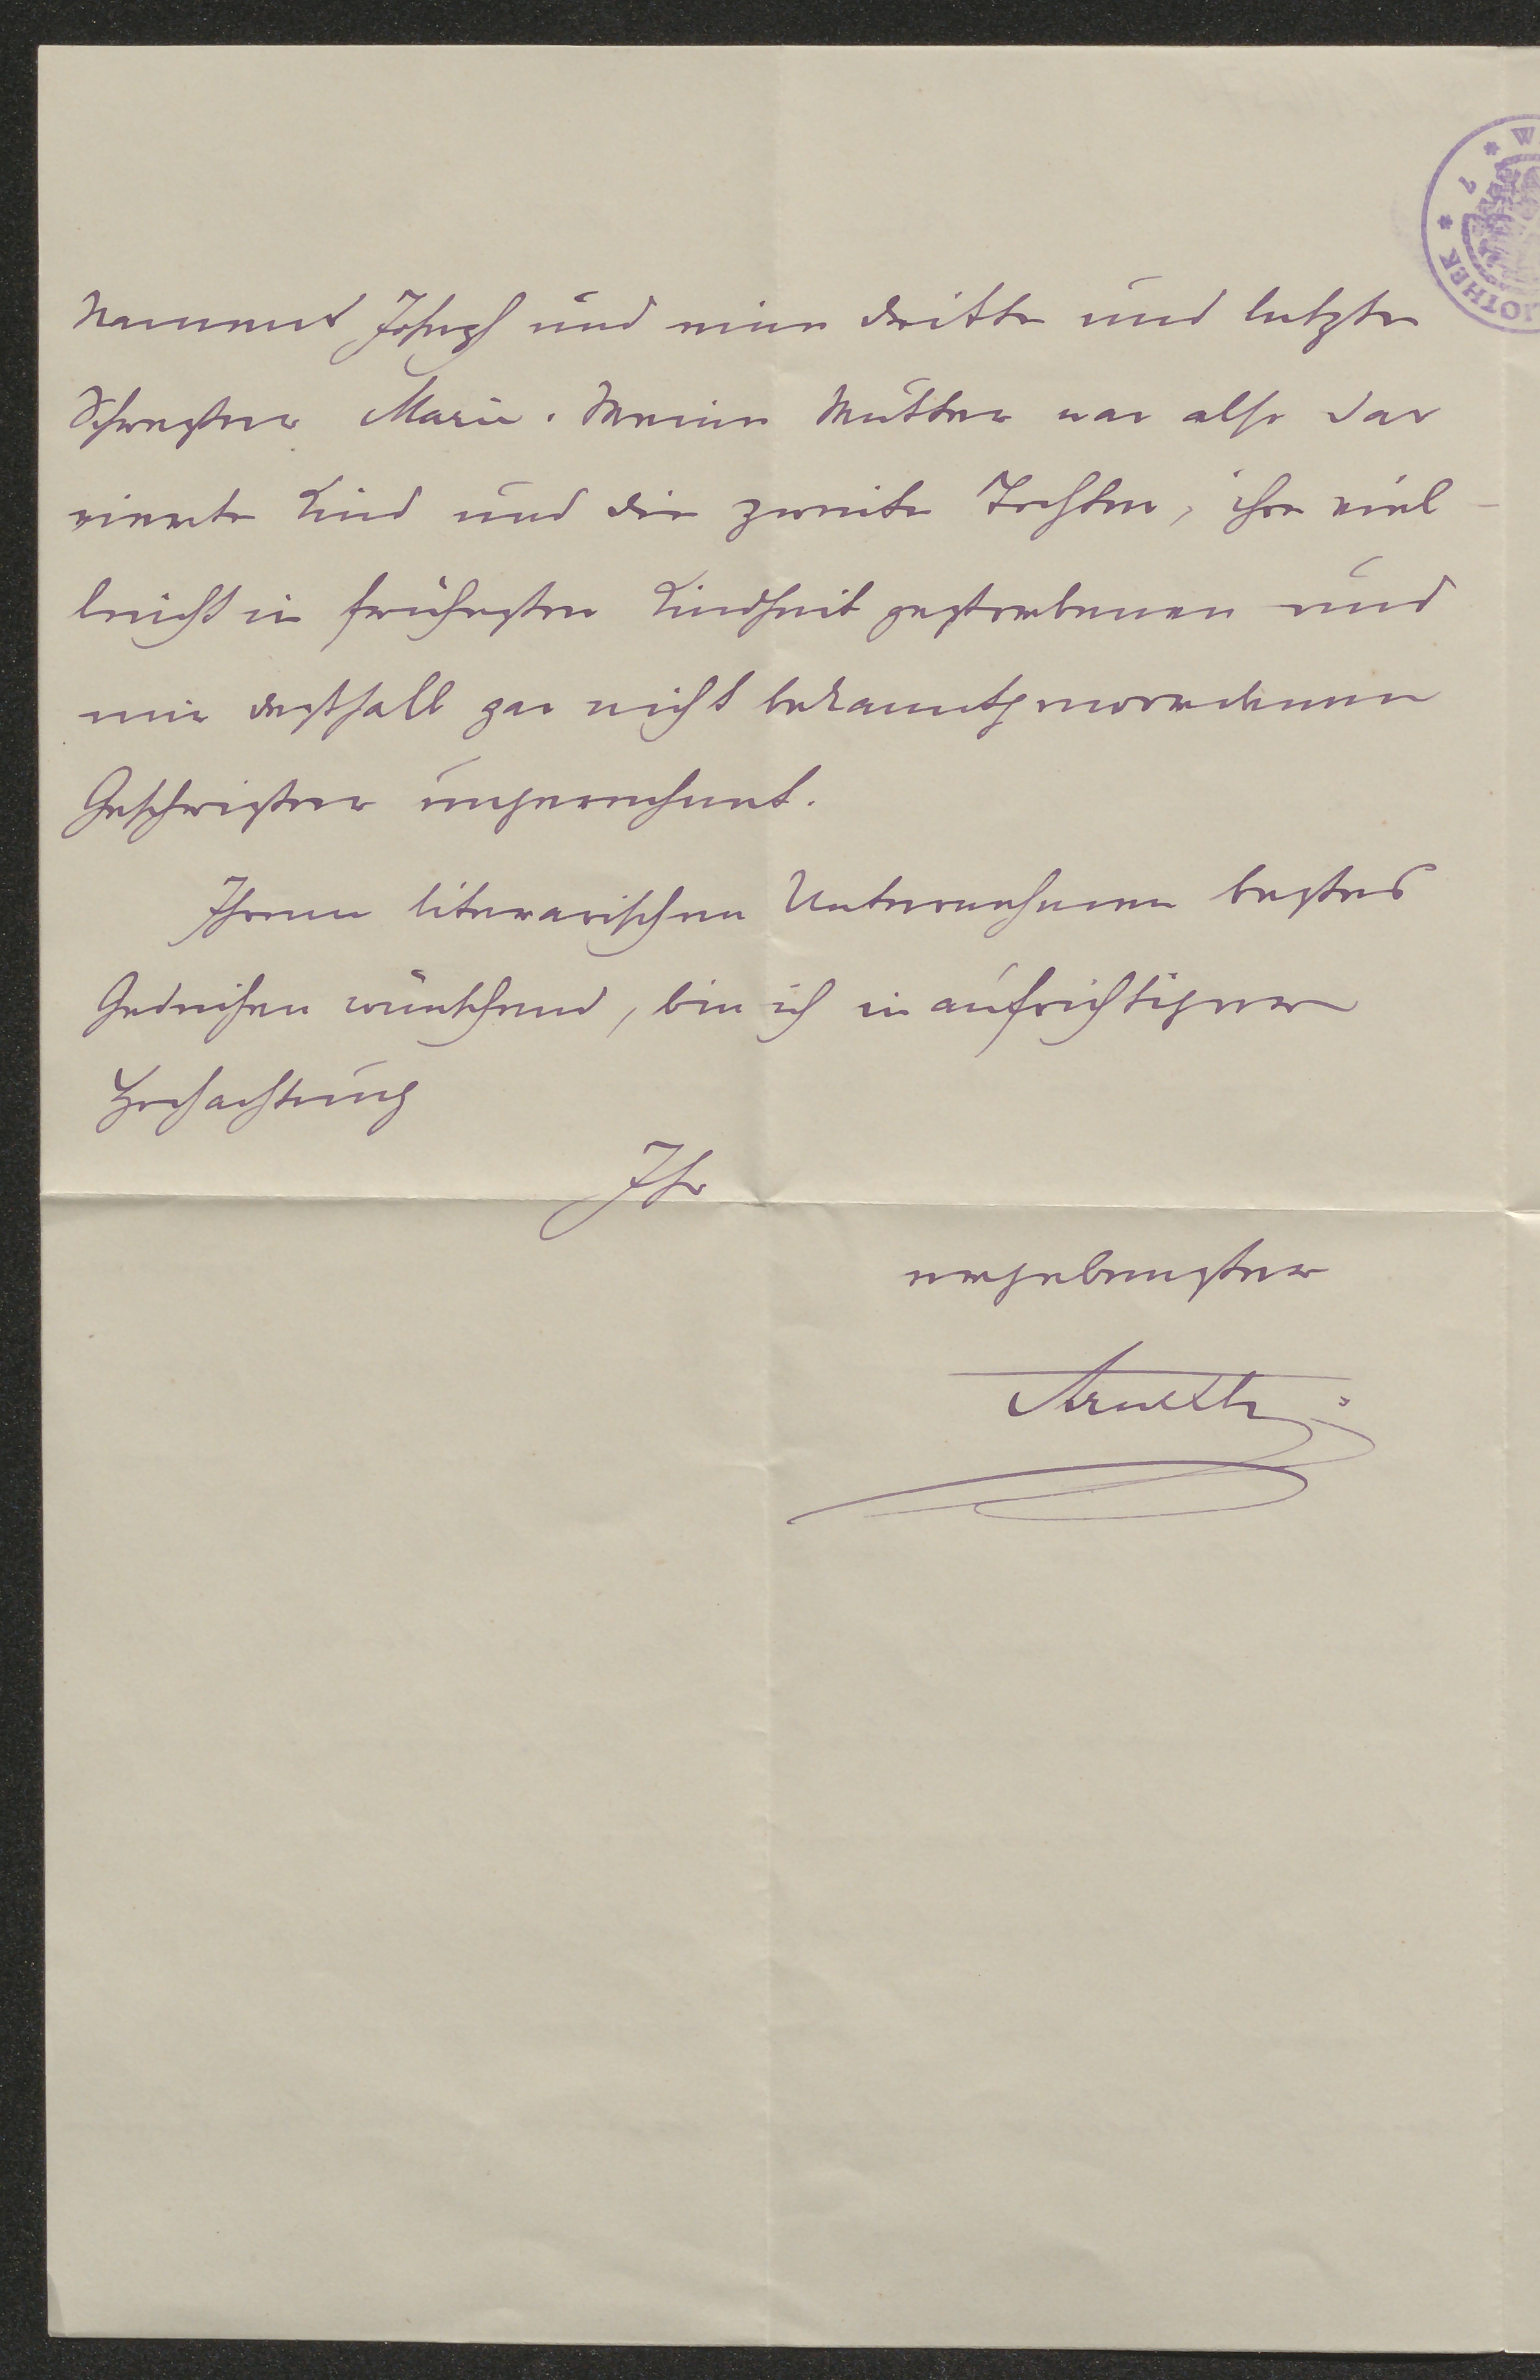 Namens Joseph und eine dritte und letzte
Schwester Marie. Meine Mutter war also das
vierte Kind und die zweite Tochter, ihre viel-
leicht in frühester Kindheit gestorbenen und
mir desshalb gar nicht bekanntgewordenen
Geschwister ungerechnet.
Ihrem literarischen Unternehmen bestes
Gedeihen wünschend, bin ich in aufrichtigster
Hochachtung
Ihr
ergebenster
Arneth